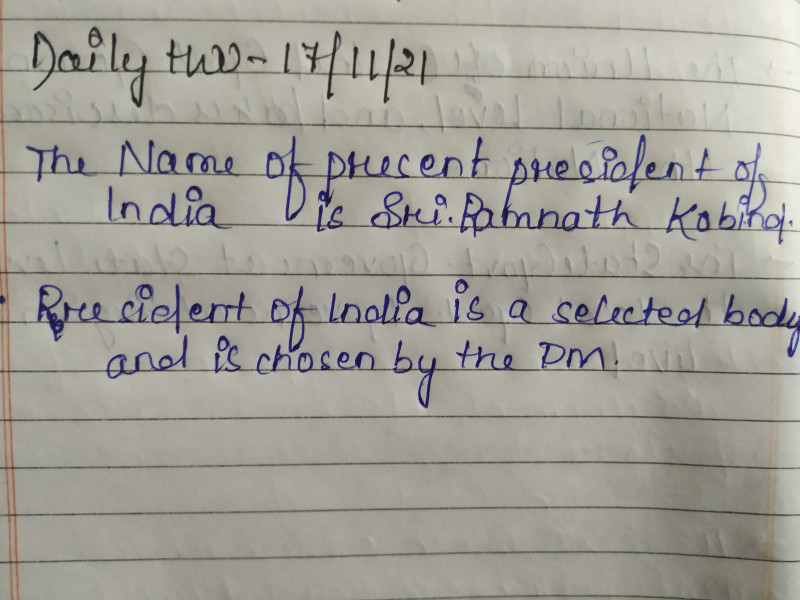 Daily HW - 17/11/21
The Name of present president of
India is Sri. Ramnath Kobind.
President of India is a selected body
and is chosen by the DM.